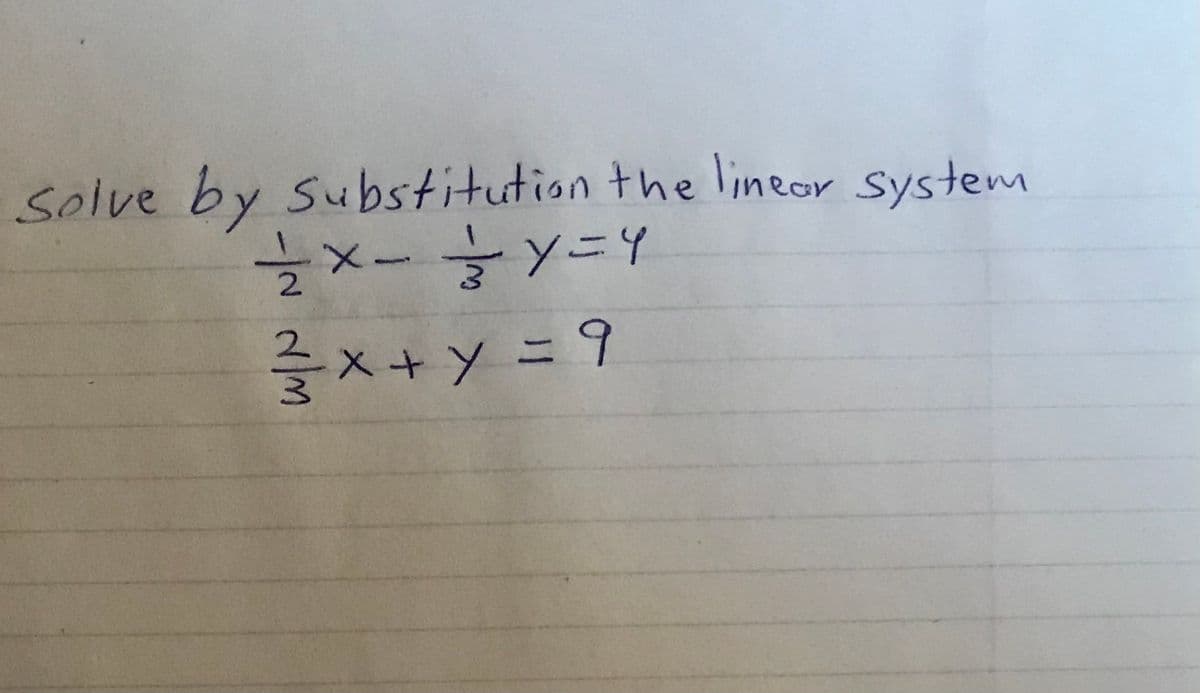 Solve by Substitution the linear system
1/2 x - 1/3 y = 4
2/3 x + y = 9